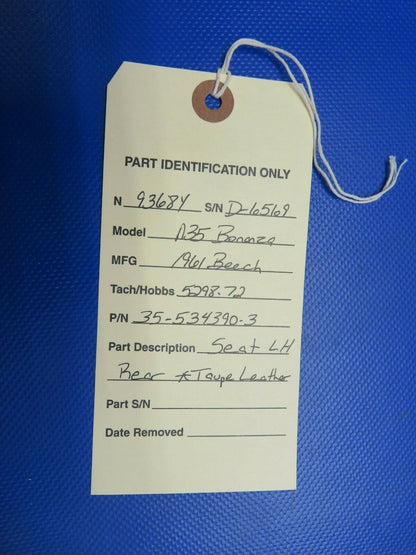 PART IDENTIFICATION ONLY
N 9368Y S/N D-6569
Model N35 Bonanza
MFG 1961 Beech
Tach/Hobbs 5298.72
P/N 35-534390-3
Part Description Seat LH
Rear *Taupe Leather
Part S/N
Date Removed